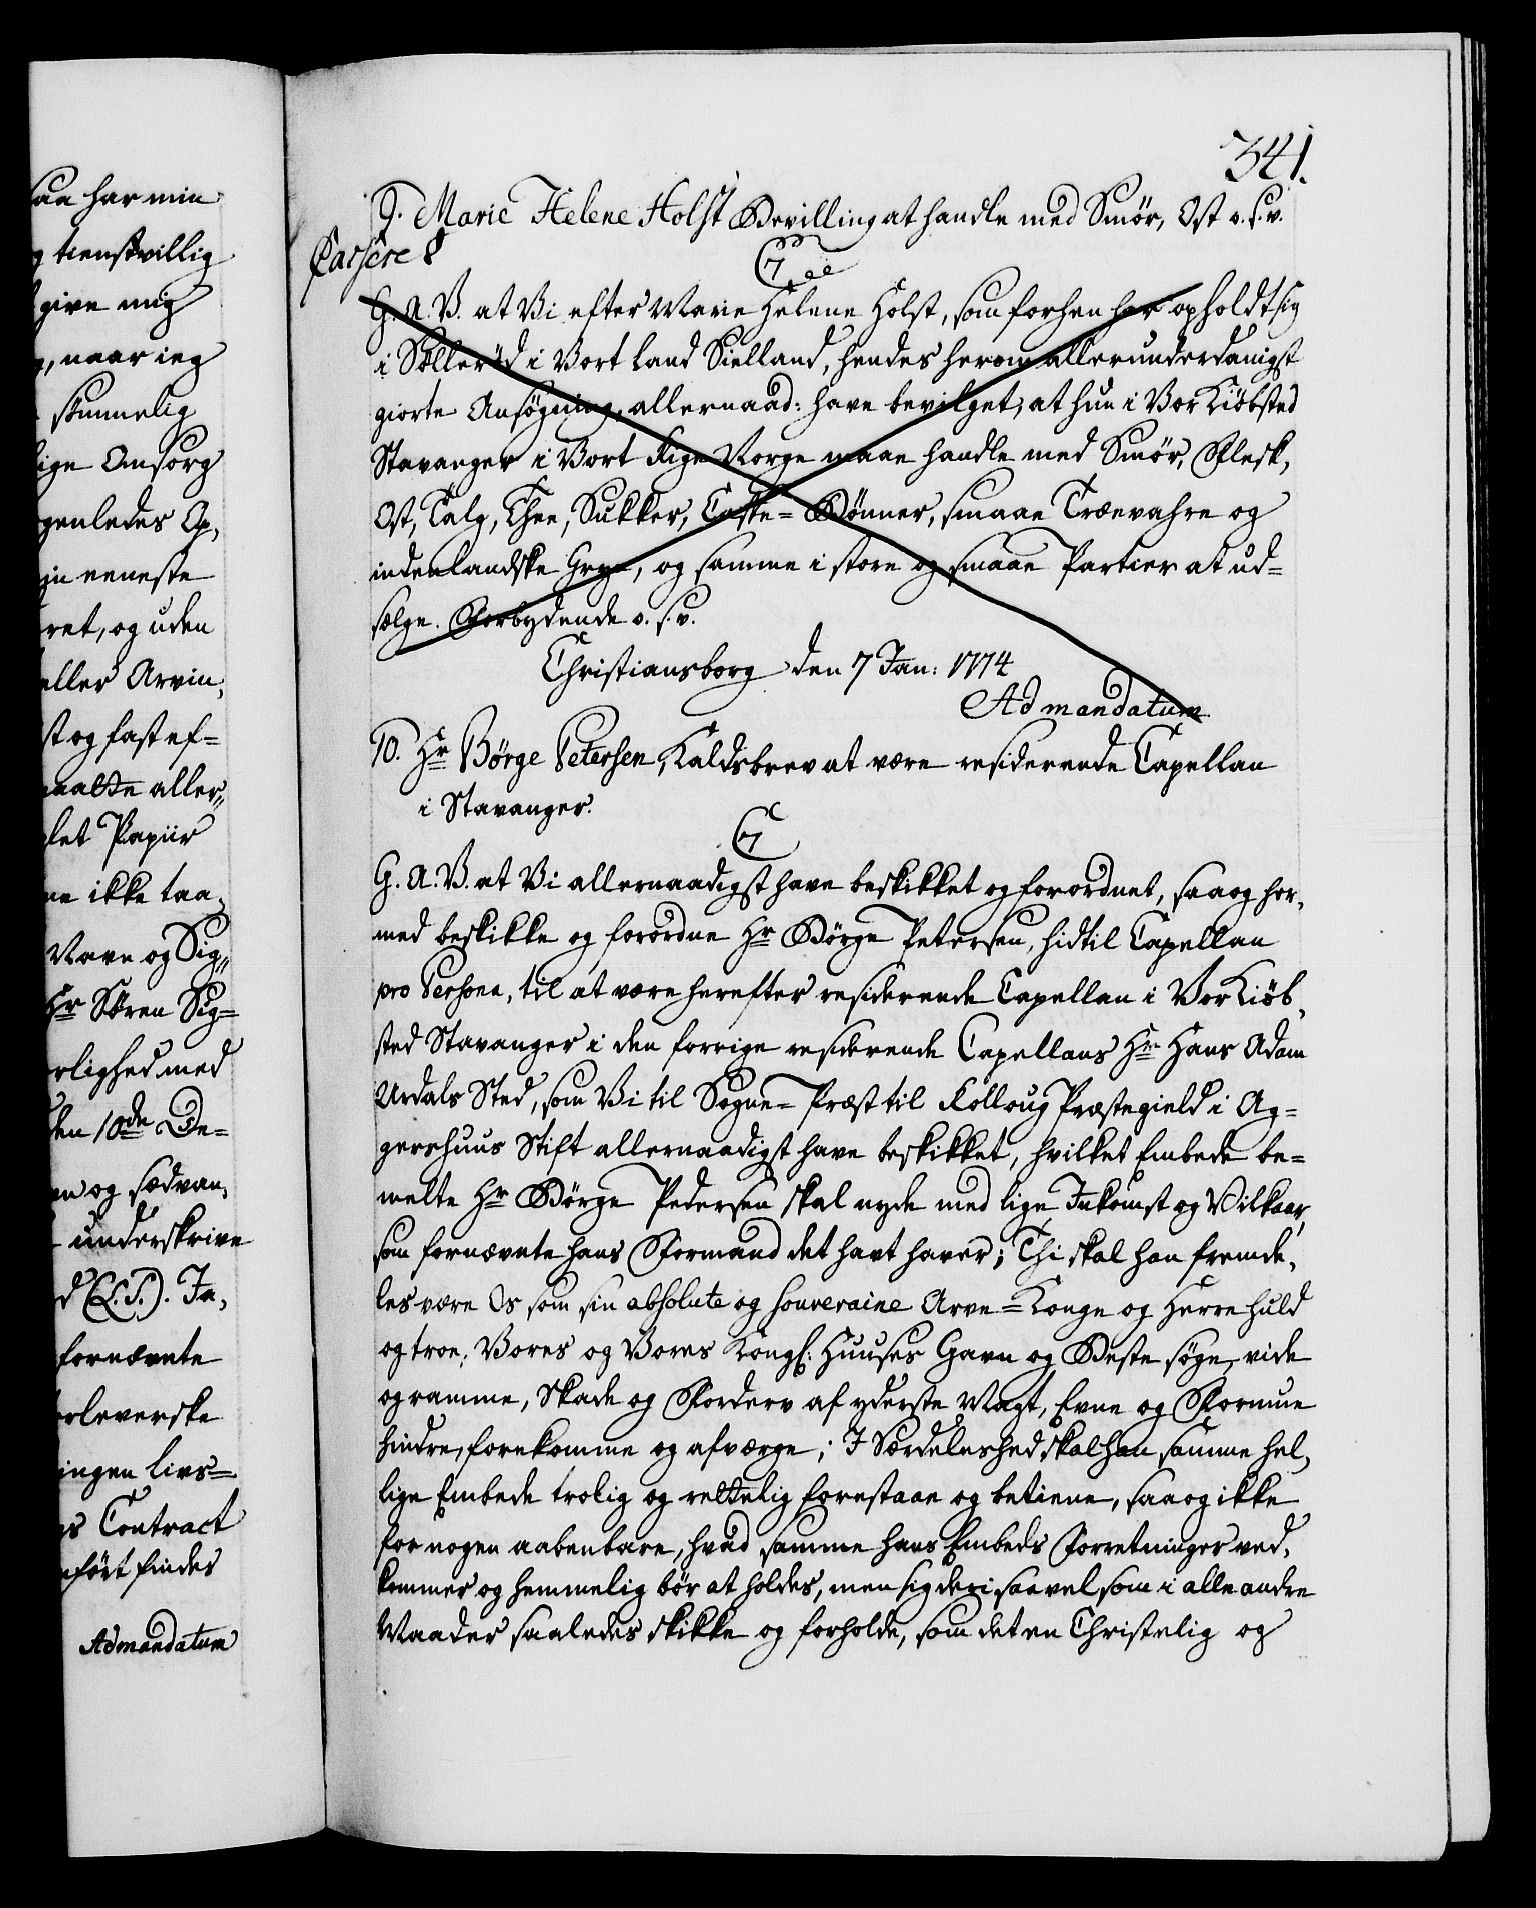 341.
9. Marie Helene Holst Bevilling at handle med Smör, Ost o. s. v.
Cassere
C7
G. A. V. at Vi efter Marie Helene Holst, som forhen har opholdt sig
i Sölleröd i Vort Land Sielland, hendes herom allerunderdanigst
giorte Ansögning, allernaad: have bevilget, at hun i Vor Kiöbsted
Stavanger i Vort Rige Norge maae handle med Smör, Flesk,
Ost, Talg, Thee, Sukker, Caffe= Bönner, smaae Trævahre og
indenlandske Gryn, og samme i store og smaae Partier at ud=
sælge. Forbydende o. s. v.
Christiansborg den 7 Jan: 1774
Ad mandatum
10. Hr Börge Petersen, Kaldsbrev at være residerende Capellan
i Stavanger.
C7
G. A. V. at Vi allernaadigst have beskikket og forordnet, saa og her,
med beskikke og forordne Hr Börge Petersen, hidtil Capellan
pro Persona, til at være herefter residerende Capellan i Vor Kiöb,
sted Stavanger i den forrige residerende Capellans Hr Hans Adam
Urdals Sted, som Vi til Sogne= Præst til Rolloug Præstegield i Ag=
gershuus Stift allernaadigst have beskikket, hvilket Embede be=
melte Hr Börge Pedersen skal nyde med lige Inkomst og Vilkaar,
som fornævnte hans Formand det havt haver; Thi skal han fremde,
les være Os som sin absolute og souveraine Arve= Konge og Herre huld
og troe, Vores og Vores Kongl: Huuses Gavn og Beste söge, vide
og ramme, Skade og Forderv af yderste Magt, Evne og Formue
hindre, forekomme og afværge; I Særdeleshed skal han samme hel,
lige Embede trolig og rettelig forestaae og betiene, saa og ikke
for nogen aabenbare, hvad samme hans Embeds Forretninger ved,
kommer og hemmelig bör at holdes, men sig deri saavel som i alle andre
Maader saaledes skikke og forholde, som det en Christelig og
saa har min
tienstvillig
give mig
, naar ieg
sömmelig
lige Omsorg
genledes Op,
eeneste
ret, og uden
eller Arvin,
st og fast ef=
maatte aller,,
let Papiir
ne ikke taa,
Navn og Sig,,
Hr Sören Sig=
rlighed med
den 10de De=
og sædvan,
underskrive
d (L. S.). Jn,
fornævnte
rleverske
ingen Livs=
Contract
fört findes
Ad mandatum